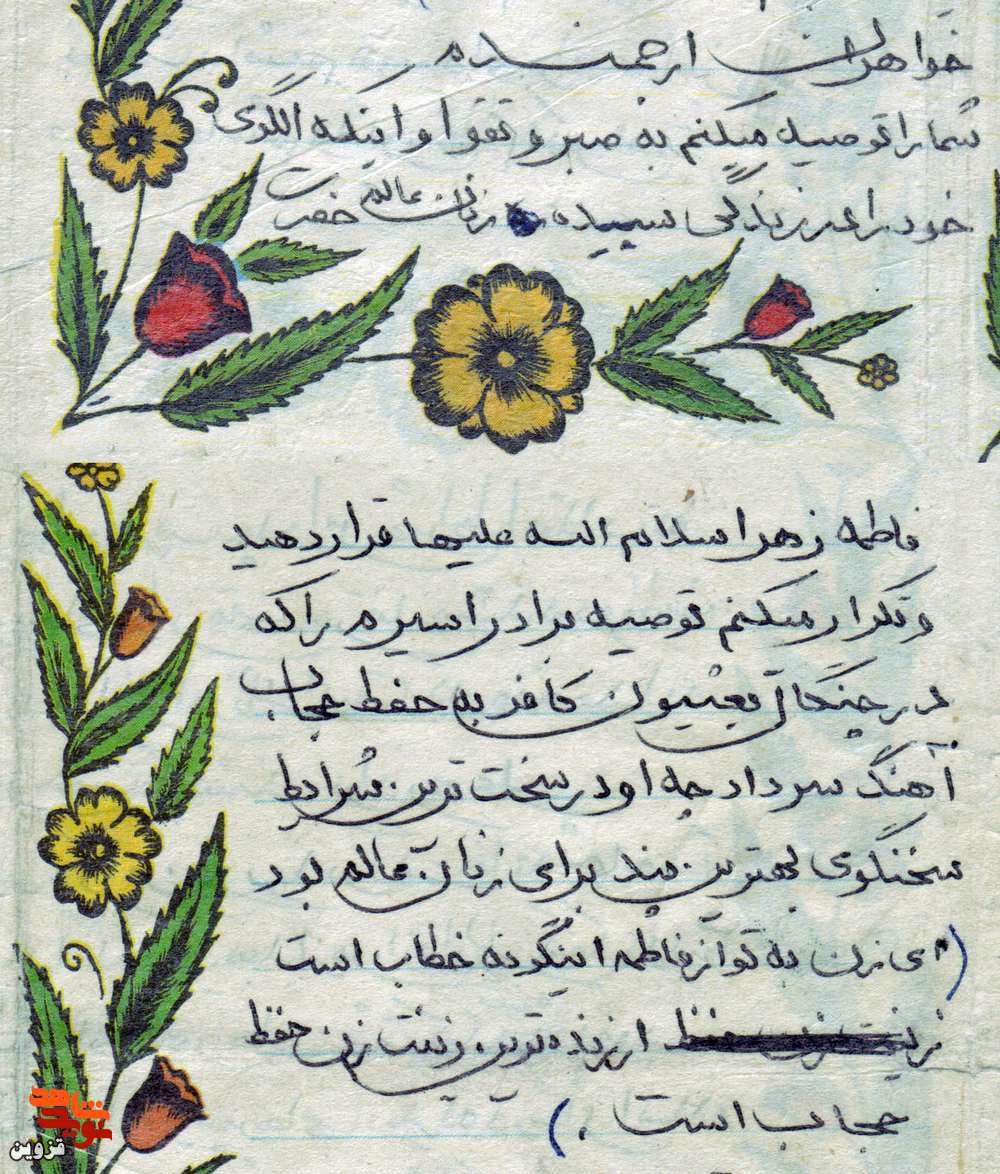 خواهران ارجمندم
شما را توصیه میکنم به صبر و تقوا و اینکه الگوی
خود را در زندگی سیده زنان عالم حضرت
فاطمه زهرا سلام الله علیها قرار دهید
و تکرار میکنم توصیه برادر اسیرم را که
در چنگال بعثیون کافر به حفظ حجاب
آهنگ سر داد چه او در سخت ترین شرایط
سخنگوی بهترین پند برای زنان عالم بود
(ای زن به تو از فاطمه اینگونه خطاب است
ارزنده ترین زینت زن حفظ
حجاب است .)
شاهد
نوید
قزوین